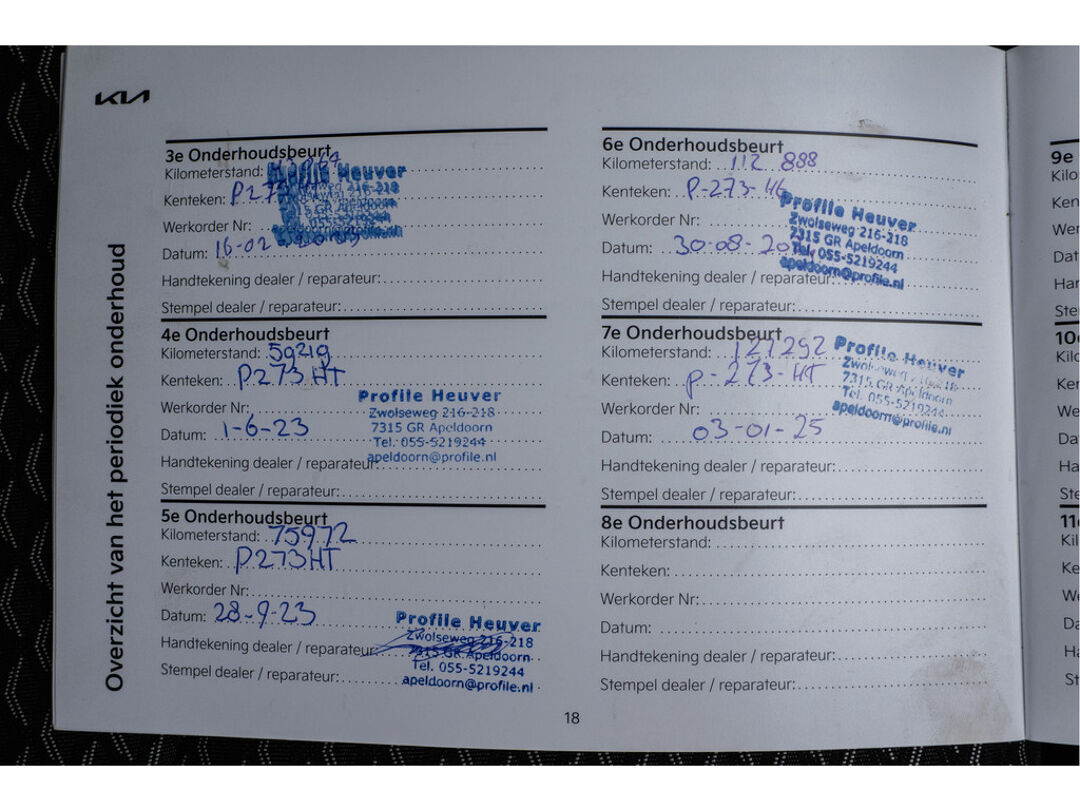 KIA
Overzicht van het periodiek onderhoud
3e Onderhoudsbeurt
Kilometerstand:
Profile Heuver
Kenteken: P273
216-218
7315 GR Apeldoorn
Werkorder Nr:
055-5219244
apeldoorn@profile.nl
Datum: 16-02
Handtekening dealer / reparateur:
Stempel dealer / reparateur:
4e Onderhoudsbeurt
Kilometerstand: 59219
Kenteken: P273HT
Werkorder Nr:
Datum: 1-6-23
Profile Heuver
Zwolseweg 216-218
7315 GR Apeldoorn
Tel. 055-5219244
apeldoorn@profile.nl
Handtekening dealer / reparateur:
Stempel dealer / reparateur:
5e Onderhoudsbeurt
Kilometerstand: 75972
Kenteken: P273HT
Werkorder Nr:
Datum: 28-9-23
Profile Heuver
Zwolseweg 216-218
7315 GR Apeldoorn
Tel. 055-5219244
apeldoorn@profile.nl
Handtekening dealer / reparateur:
Stempel dealer / reparateur:
6e Onderhoudsbeurt
Kilometerstand: 112 888
Kenteken: P-273-H
Werkorder Nr:
Datum: 30-08-20
Profile Heuver
Zwolseweg 216-218
7315 GR Apeldoorn
Tel. 055-5219244
apeldoorn@profile.nl
Handtekening dealer / reparateur:
Stempel dealer / reparateur:
7e Onderhoudsbeurt
Kilometerstand: 127292
Kenteken: P-273-HT
Werkorder Nr:
Datum: 03-01-25
Profile Heuver
Zwolseweg 216-218
7315 GR Apeldoorn
Tel. 055-5219244
apeldoorn@profile.nl
Handtekening dealer / reparateur:
Stempel dealer / reparateur:
8e Onderhoudsbeurt
Kilometerstand:
Kenteken:
Werkorder Nr:
Datum:
Handtekening dealer / reparateur:
Stempel dealer / reparateur:
18
9e
Kilo
Ken
Wer
Dat
Har
Ste
10e
Kilo
Ker
We
Da
Ha
Ste
11e
Kil
Ke
We
Da
Ha
St